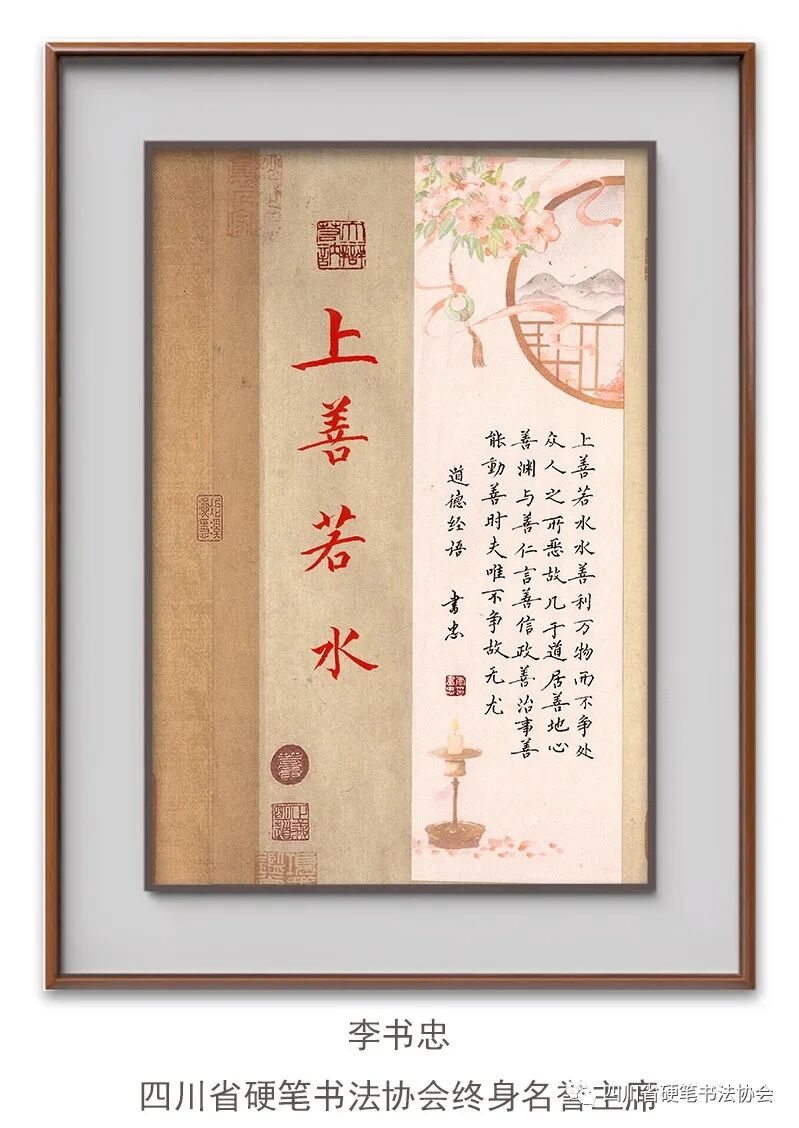 上善若水
上善若水水善利万物而不争处
众人之所恶故几于道居善地心
善渊与善仁言善信政善治事善
能動善时夫唯不争故无尤
道德经语 书忠
李书忠
四川省硬笔书法协会终身名誉主席
四川省硬笔书法协会